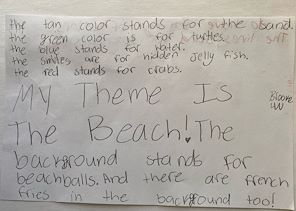 the tan color stands for the sand.
the green color is for turtles.
the blue stands for water.
the smiles are for hidden jelly fish.
the red stands for crabs.
My Theme Is
The Beach! The
background stands for
beachballs. And there are french
fries in the background too!